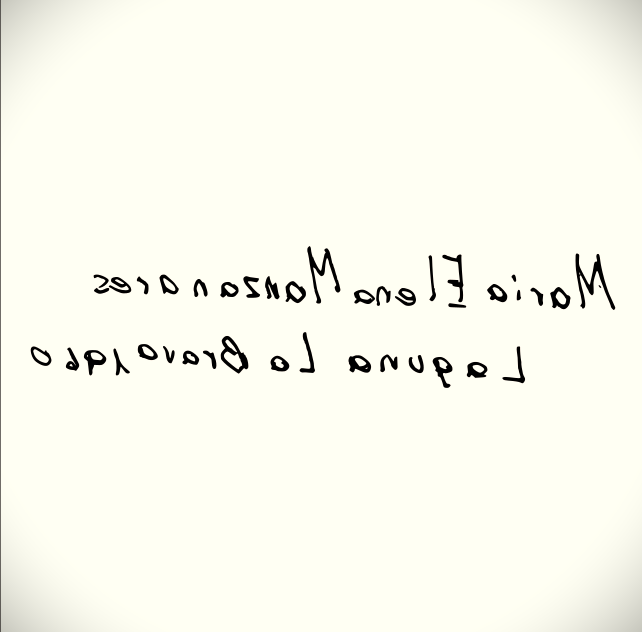 Maria Elena Manzanares
Laguna La Brava 1960